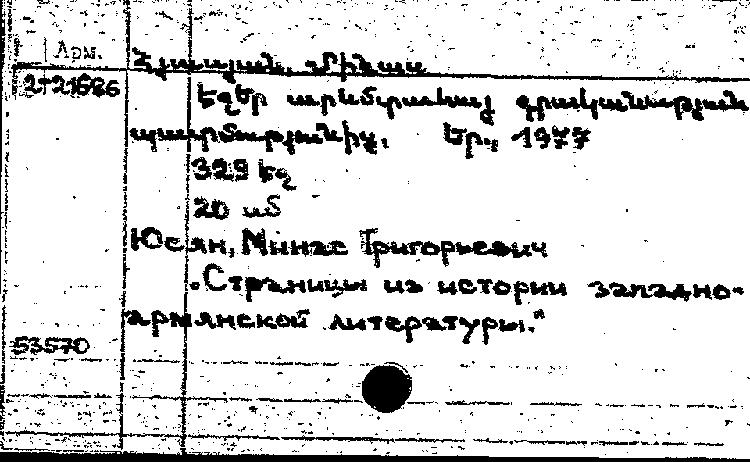 Арм.
2т21686
Հյուսյան, Մինաս
Էջեր արևմտահայ գրականության
պատմությունից. Եր., 1977
329 էջ
20 սմ
Юсян, Минас Григорьевич
"Страницы из истории западно-
армянской литературы."
53570